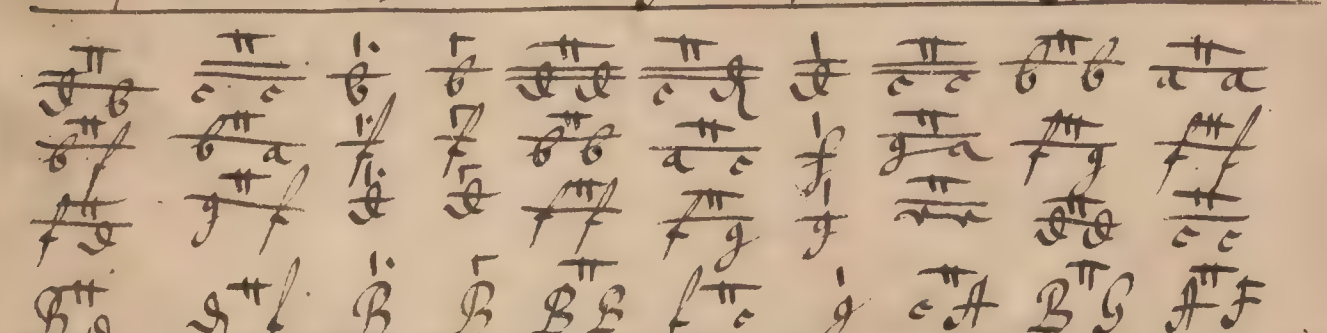 d b c c b b d d c d d c c b b a a
b f b a f f b b a c f g a f g f f
f d g f d d f f f g g r r d d c c
B d d f B B B B f c g c A B G A F